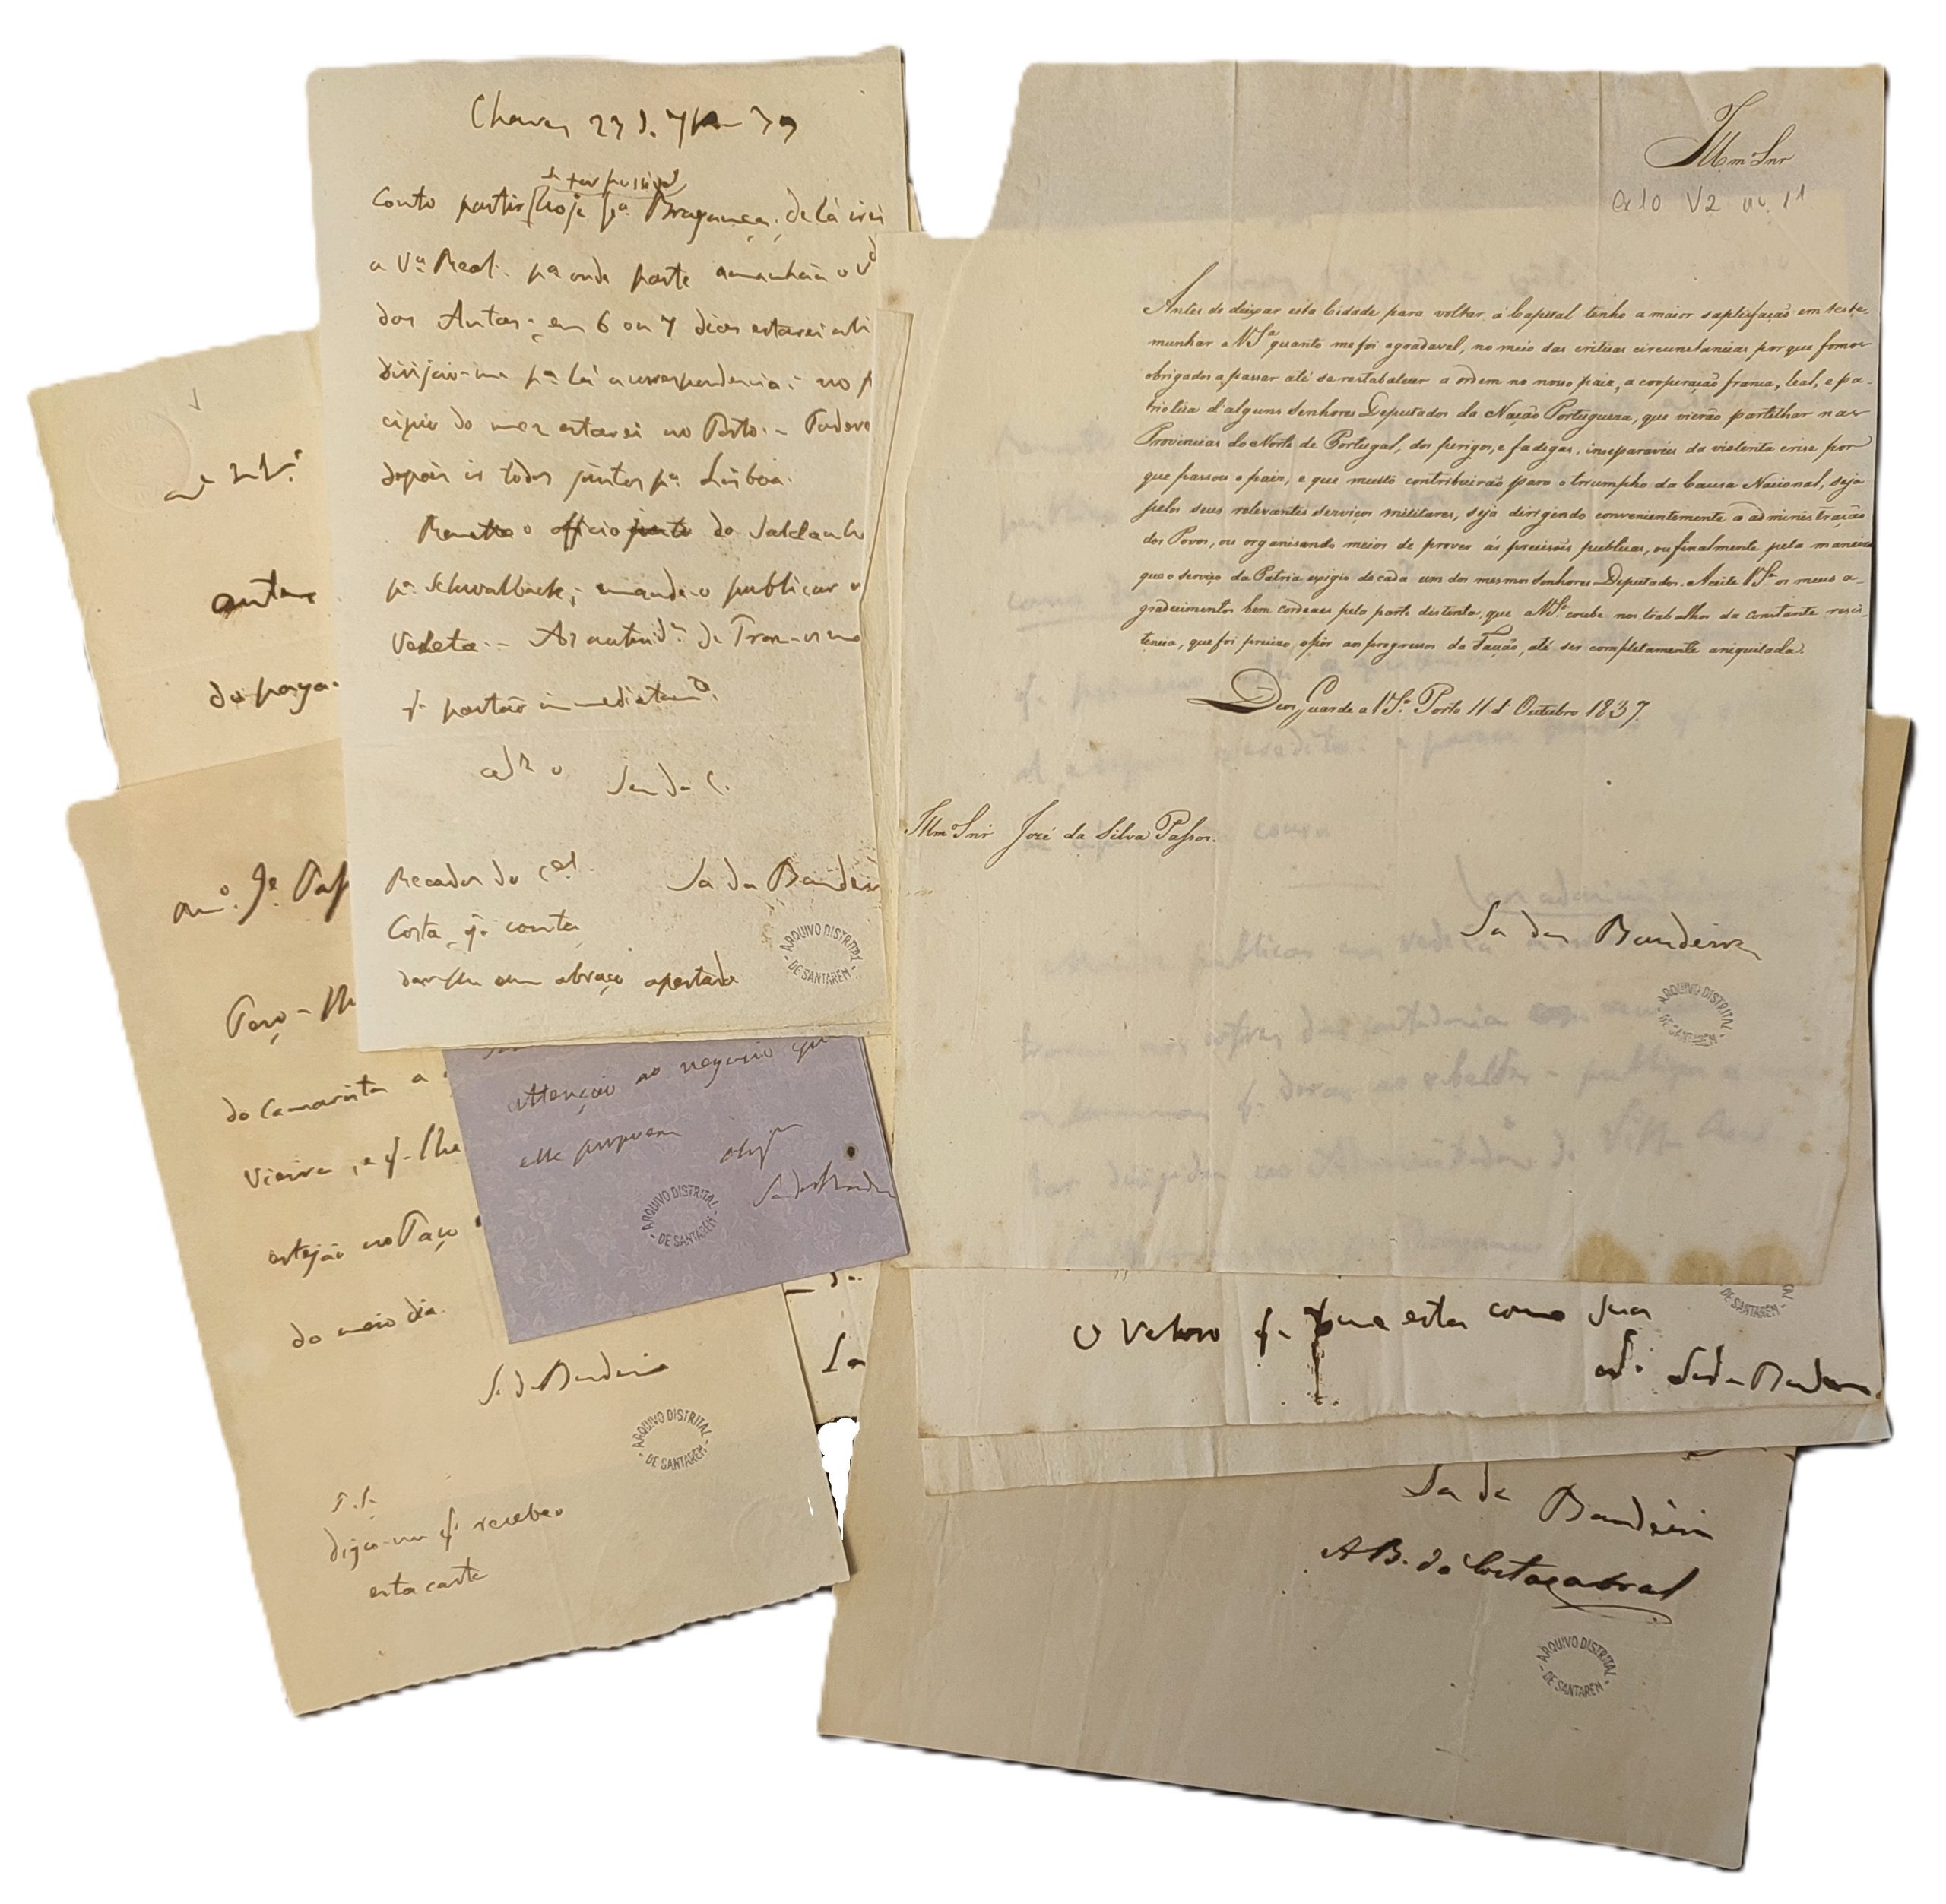 Chaves 23 d. 7br 39
se for possivel
Conto partir hoje pa. Bragança; de lá irei
a Va. Real. pa. onde parte amanhãa o Vde
das Antas; em 6 ou 7 dias estarei ali
dirijão-me pa. lá a correspondencia; no p
cipio do mez estarei no Porto. - Podere
depois ir todos juntos pa. Lisboa.
Remetto o officio junto do Saldanh
pa. Schwalback; mande-o publicar
Vedeta. - As autorid. de Tras-os-m
q. partão immediatame.
Sa da
Recados do Cel.
Costa q. conta
dar-lhe um abraço apertado
Sa da Bandeir
ARQUIVO DISTRITAL
DE SANTARÉM
Illmo. Snr
V2
11
Antes de deixar esta Cidade para voltar á Capital tenho a maior satisfação em teste-
munhar a VSa. quanto me foi agradavel, no meio das criticas circunstancias por que fomos
obrigados a passar até se restabelecer a ordem no nosso paiz, a cooperação franca, leal, e pa-
triotica d'alguns Senhores Deputados da Nação Portugueza, que vierão partilhar nas
Provincias do Norte de Portugal, dos perigos, e fadigas, inseparaveis da violenta crise por
que passou o paiz, e que muito contribuirão para o triumpho da Causa Nacional, seja
pelos seus relevantes serviços militares, seja dirigindo convenientemente a administração
dos Povos, ou organisando meios de prover ás precisões publicas, ou finalmente pela maneira
que o serviço da Patria exigio de cada um dos mesmos Senhores Deputados. Aceite VSa. os meus a-
gradecimentos bem cordeaes pela parte distinta, que a VSa. coube nos trabalhos da constante resis-
tencia, que foi preciso opôr aos progressos da Facção, até ser completamente aniquilada.
Deos Guarde a VSa. Porto 11 d' Outubro 1837.
Illmo. Snr José da Silva Passos.
Sa da Bandeira
ARQUIVO DISTRITAL
DE SANTARÉM
DE SANTARÉM
O Veloso q. esta como seu
Sa da Bandeira
Sa da Bandeira
A B. da Costa Cabral
ARQUIVO DISTRITAL
DE SANTARÉM
do paga-
Amo. Je. Pass
Peço-lh
do Camarista a
Vieira, e q. lhe
estejão no Paço
do meio dia.
Sa da Bandeira
ARQUIVO DISTRITAL
DE SANTARÉM
P.S.
diga-me q. recebeo
esta carta
attenção ao negocio que
elle
Sa da Bandei
ARQUIVO DISTRITAL
DE SANTARÉM
Sa